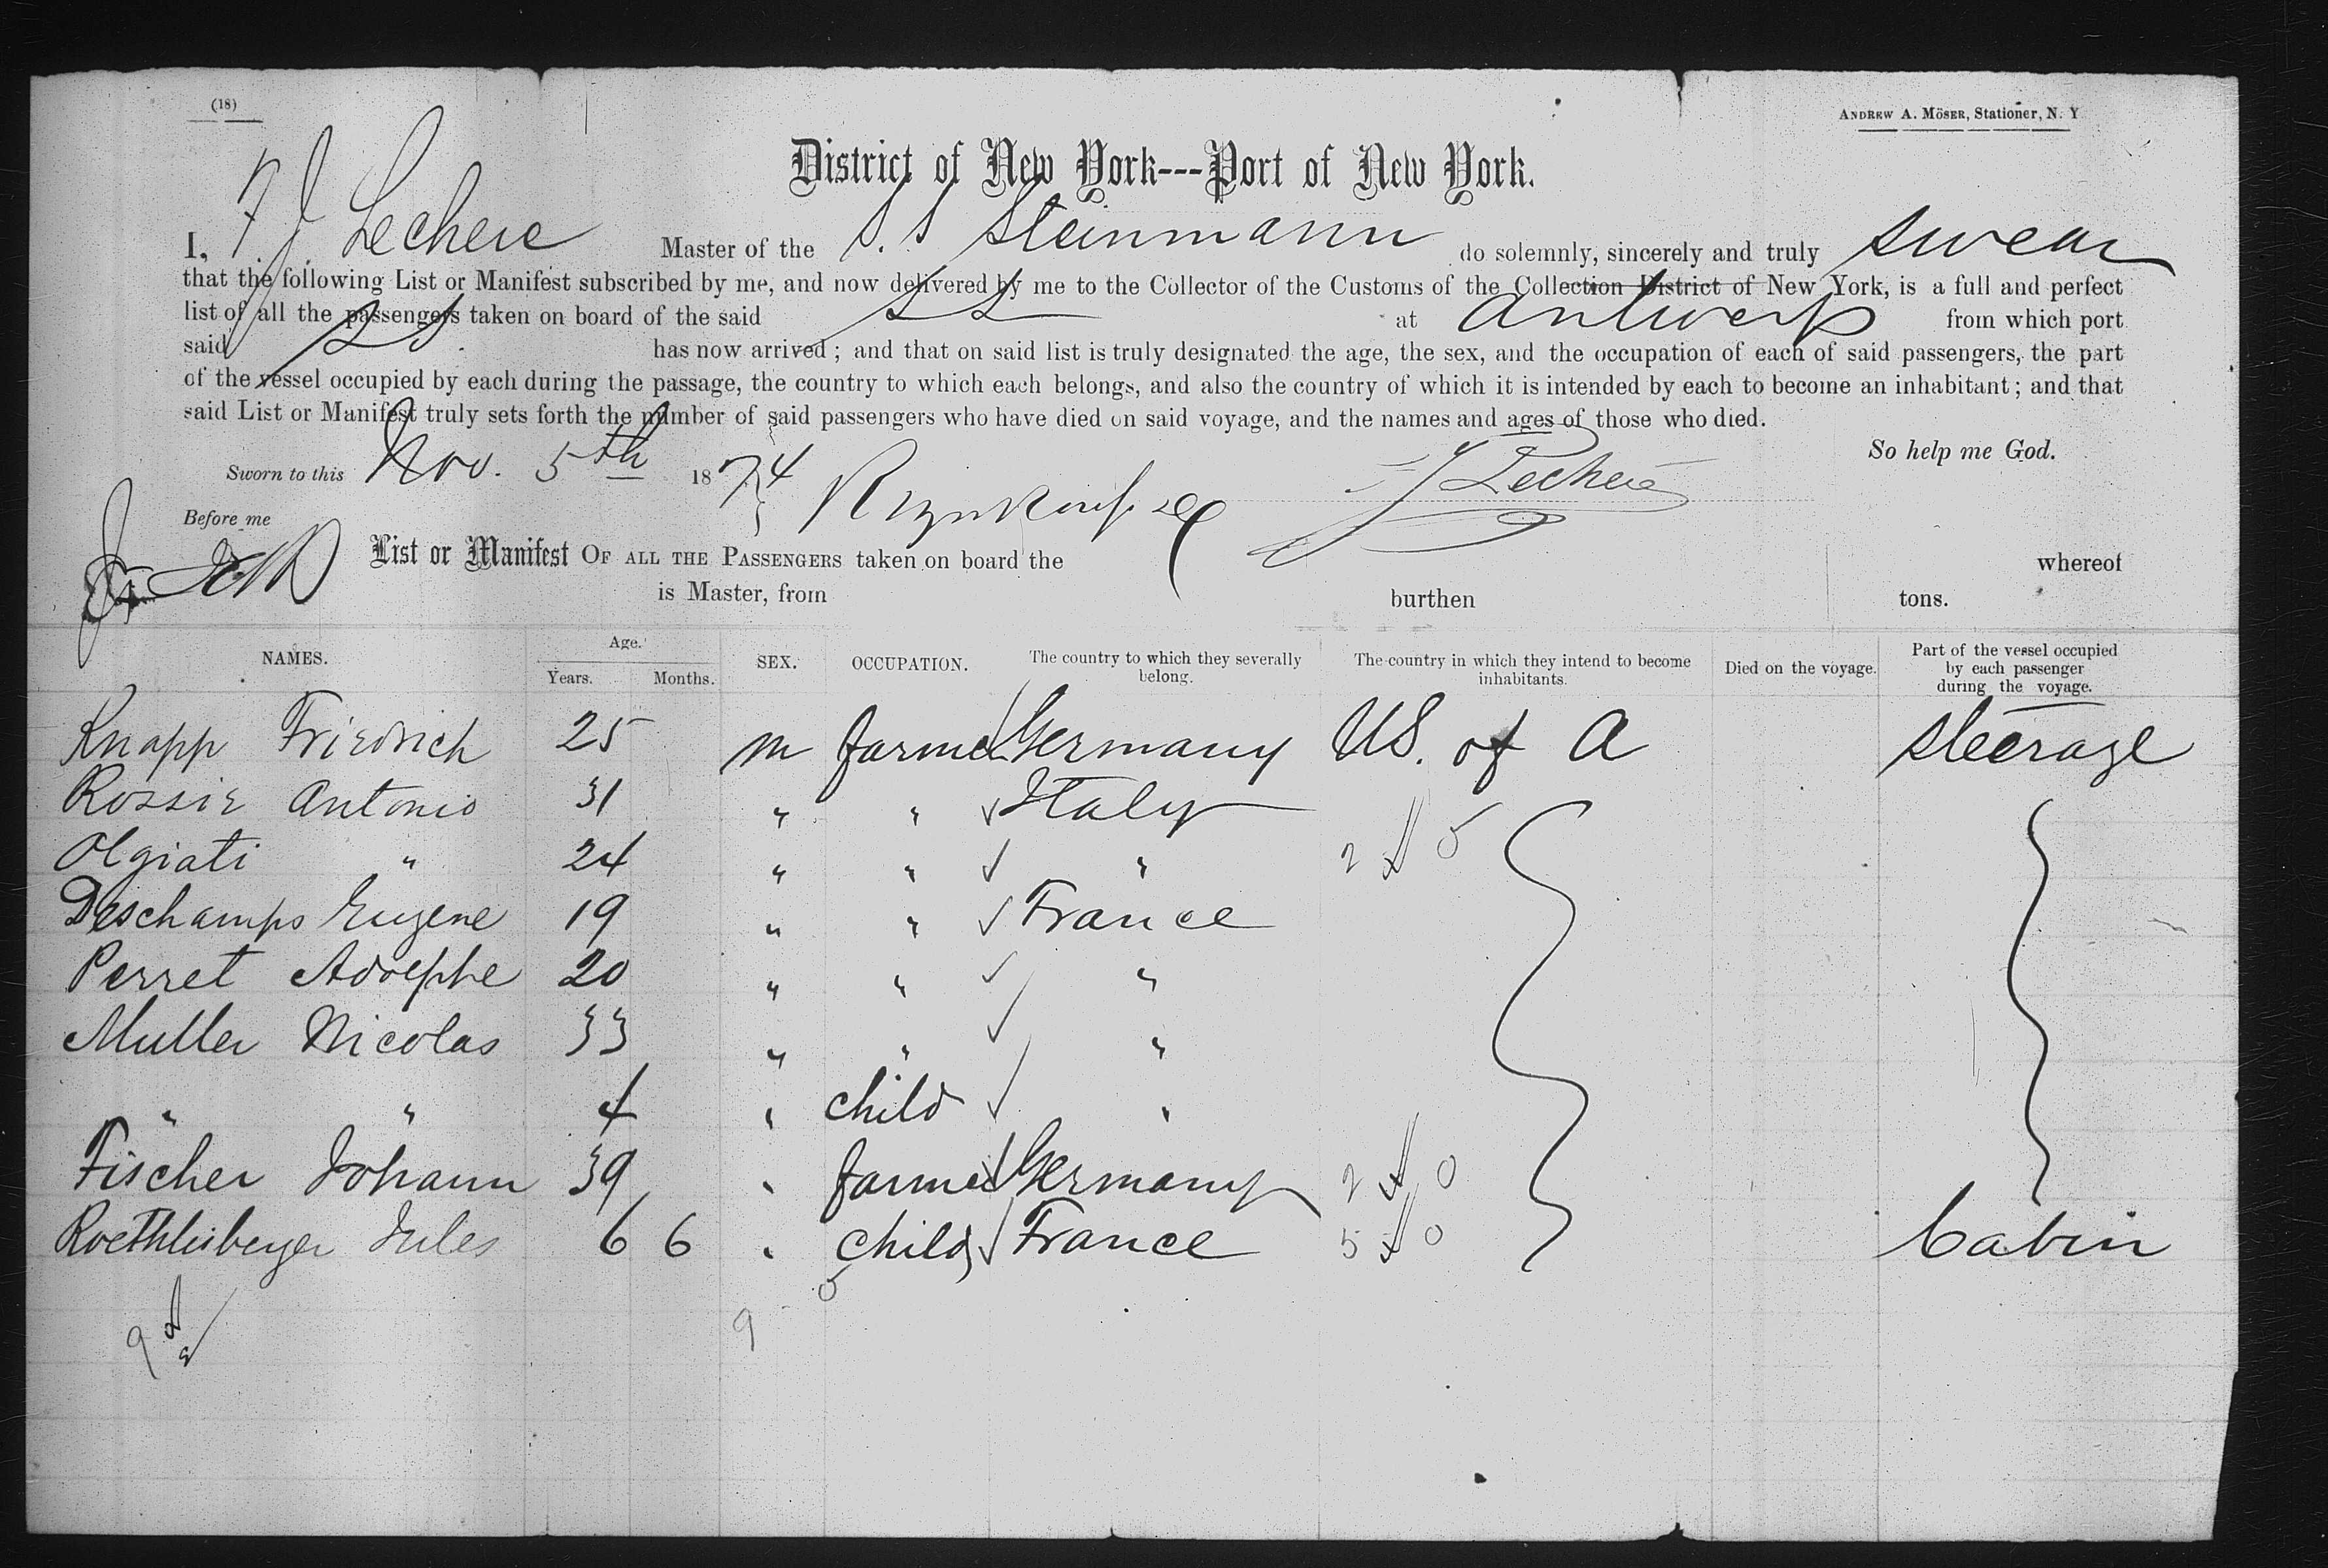 (18)
ANDREW A. MÖSER, Stationer, N. Y
District of New York---Port of New York.
I, F J Leclere Master of the S. S Steinmann do solemnly, sincerely and truly swear
that the following List or Manifest subscribed by me, and now delivered by me to the Collector of the Customs of the Collection District of New York, is a full and perfect
list of all the passengers taken on board of the said SS at Antwerp from which port
said SS has now arrived; and that on said list is truly designated the age, the sex, and the occupation of each of said passengers, the part
of the vessel occupied by each during the passage, the country to which each belongs, and also the country of which it is intended by each to become an inhabitant; and that
said List or Manifest truly sets forth the number of said passengers who have died on said voyage, and the names and ages of those who died.
So help me God.
Sworn to this Nov. 5th 1874
Before me
List or Manifest OF ALL THE PASSENGERS taken on board the whereof
is Master, from burthen tons.
NAMES. Age. Years. Months. SEX. OCCUPATION. The country to which they severally belong. The country in which they intend to become inhabitants. Died on the voyage. Part of the vessel occupied by each passenger during the voyage.
Knapp Friedrich 25 m farmer Germany US. of A Steerage
Rossie Antonio 31 " " Italy
Olgiati " 24 " " "
Deschamps Eugene 19 " " France
Perret Adolphe 20 " " "
Muller Nicolas 33 " " "
" " 4 " child "
Fischer Johann 39 " farmer Germany
Roethlisberger Jules 6 6 " child France Cabin
9
9